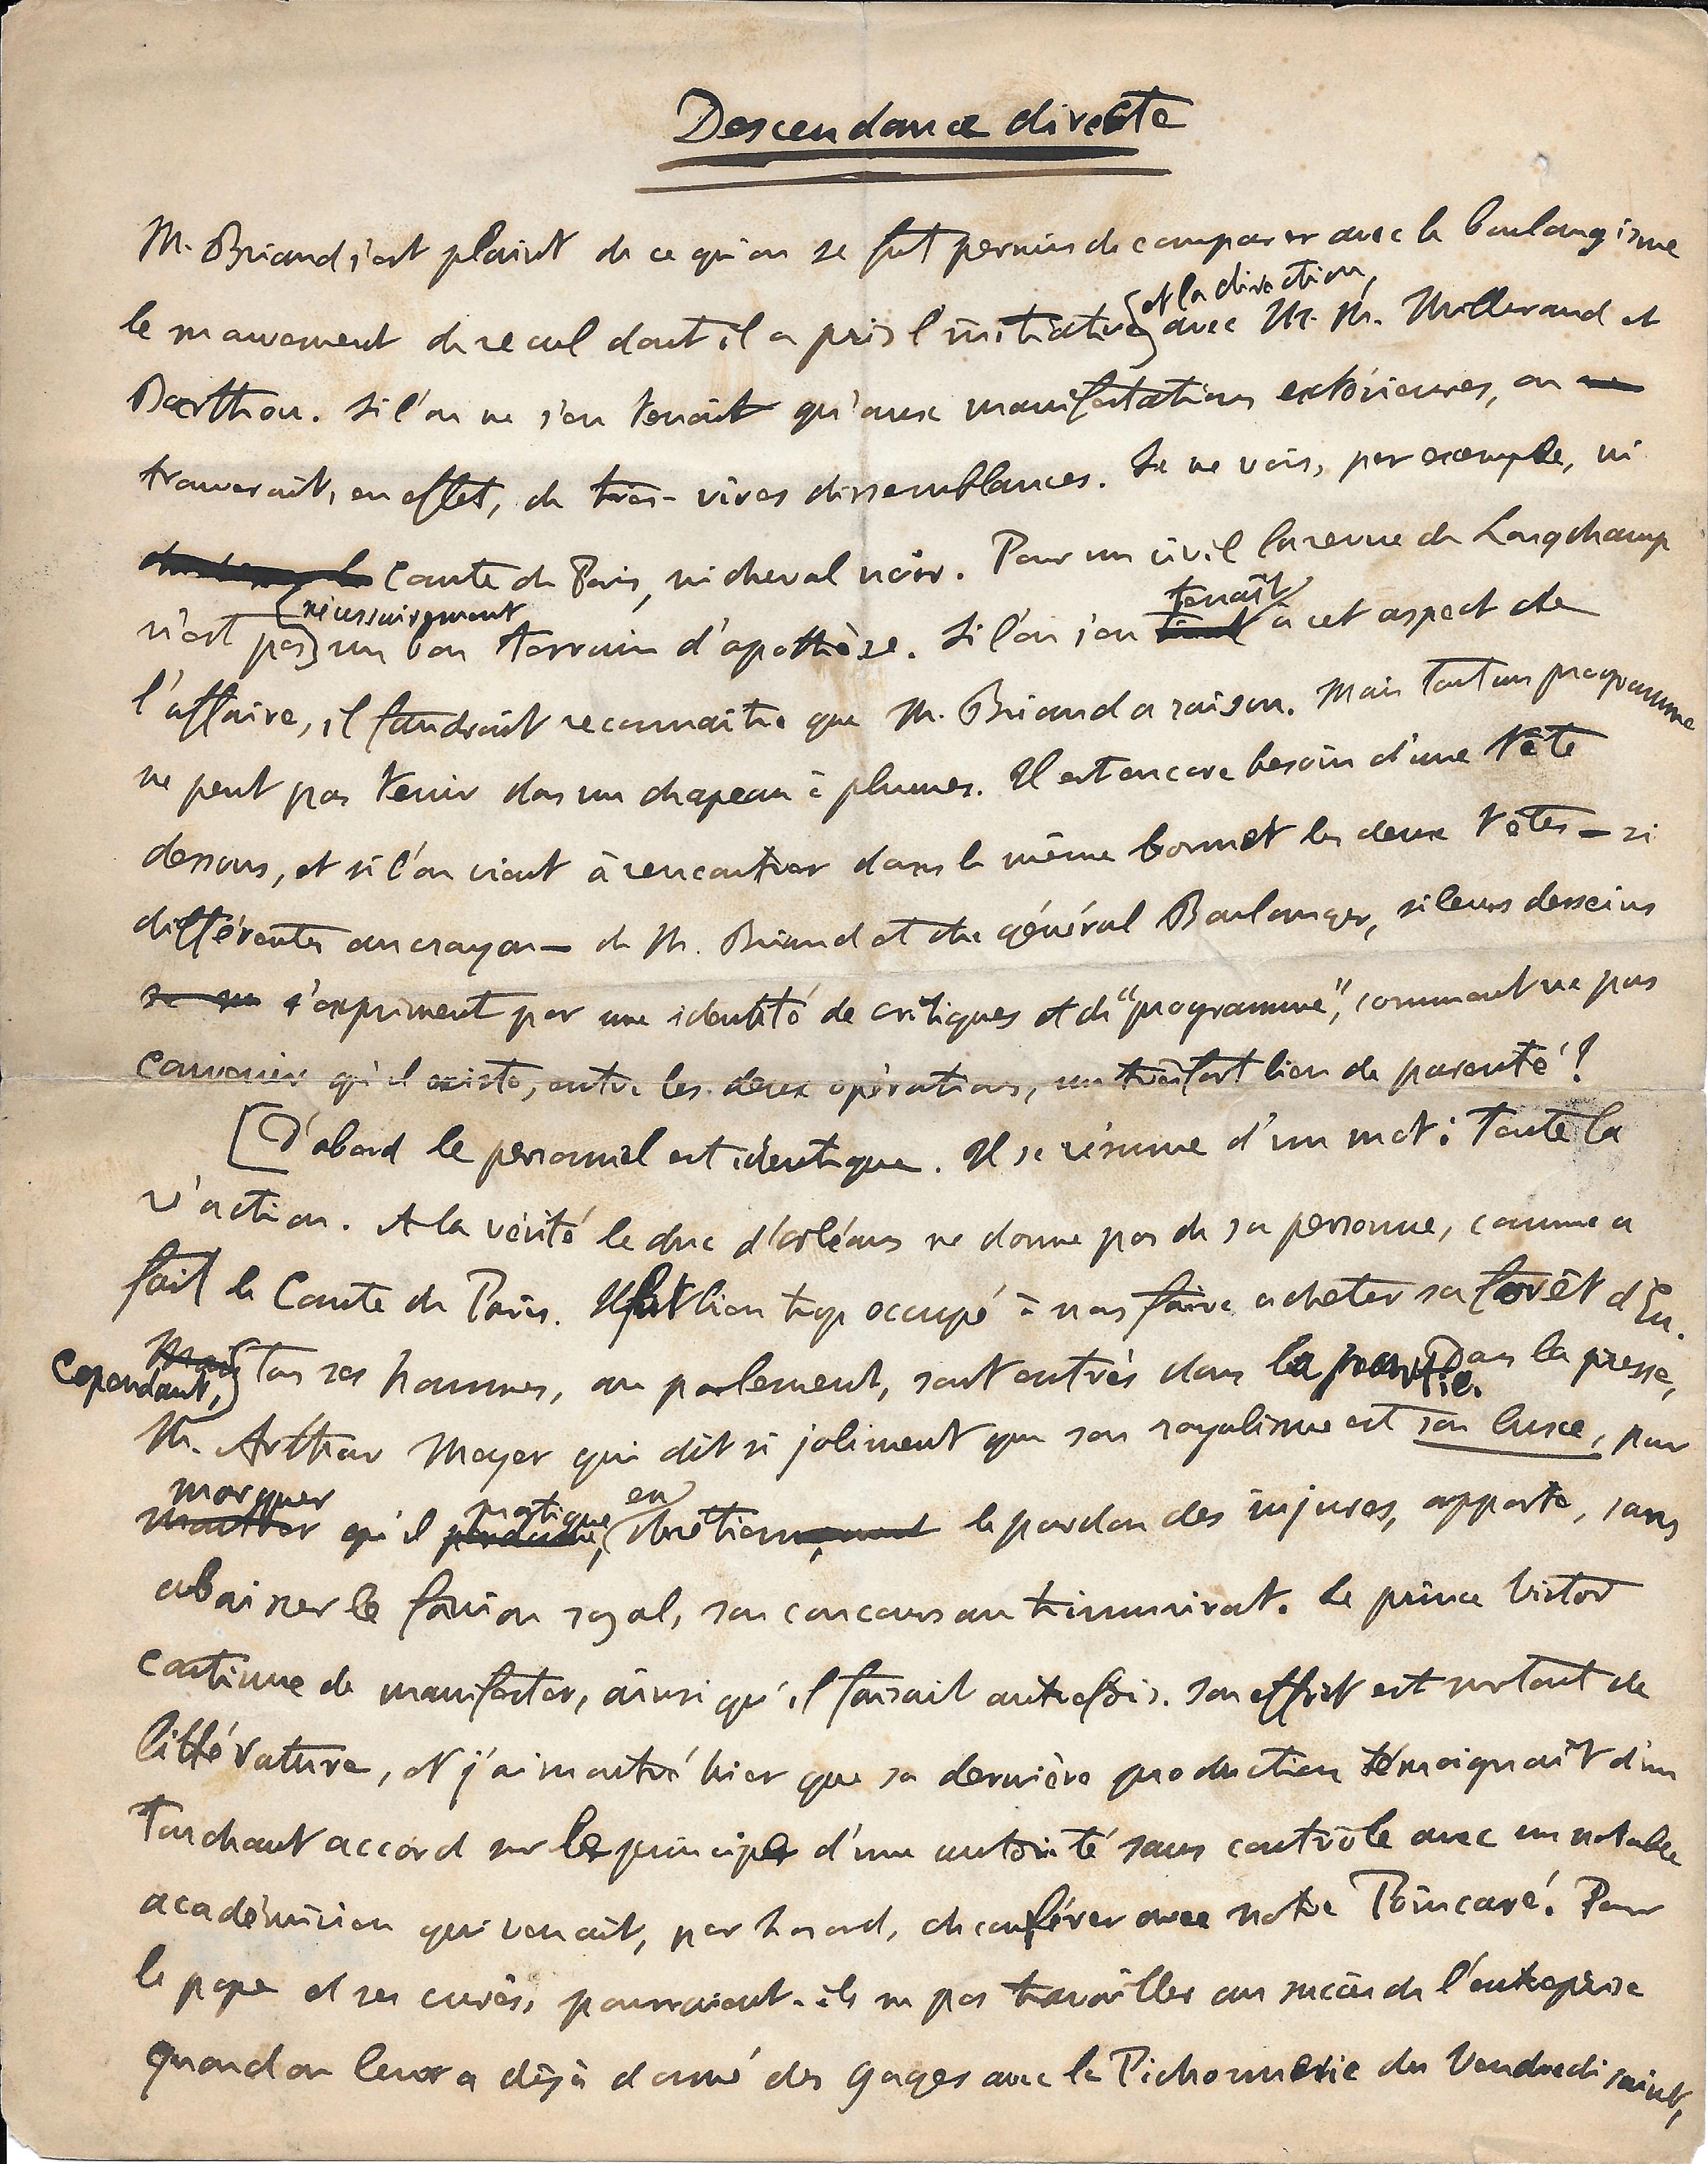 Descendance directe
M. Briand s'est plaint de ce qu'on se fut permis de comparer avec le boulangisme
le mouvement de recul dont il a pris l'initiative et la direction, avec M. M. Millerand et
Barthou. Si l'on ne s'en tenait qu'aux manifestations extérieures, on
trouverait, en effet, de très-vives dissemblances. Je ne vois, par exemple, ni
Comte de Paris, ni cheval noir. Pour un civil la revue de Longchamp
n'est pas nécessairement un bon terrain d'apothèse. Si l'on s'en tenait à cet aspect de
l'affaire, il faudrait reconnaître que M. Briand a raison. Mais tout un programme
ne peut pas tenir dans un chapeau à plumes. Il est encore besoin d'une tête
dessous, et si l'on vient à rencontrer dans le même bonnet les deux têtes — si
différentes au crayon — de M. Briand et du général Boulanger, si leurs desseins
s'expriment par une identité de critiques et de "programme", comment ne pas
convenir qu'il existe, entre les deux opérations, un très fort lien de parenté?
[D'abord le personnel est identique. Il se résume d'un mot: toute la
réaction. A la vérité le duc d'orléans ne donne pas de sa personne, comme a
fait le Comte de Paris. Il fut bien trop occupé à nous faire acheter sa forêt d'Eu.
Cependant, tous ses hommes, au parlement, sont entrés dans la partie. Dans la presse,
M. Arthur Meyer qui dit si joliment que son royalisme est son luxe, pour
marquer qu'il pratique, en chrétien, le pardon des injures, apporte, sans
abaisser le fanion royal, son concours au triumvirat. Le prince Victor
continue de manifester, ainsi qu'il faisait autrefois. Son effort est surtout de
littérature, et j'ai montré hier que sa dernière production témoignait d'un
touchant accord sur le principe d'une autorité sans contrôle avec un notable
académicien qui venait, par hasard, de conférer avec notre Poincaré. Pour
le pape et ses curés, pourraient-ils ne pas travailler au succès de l'entreprise
quand on leur a déjà donné des gages avec la Pichonnerie du Vendredi saint,